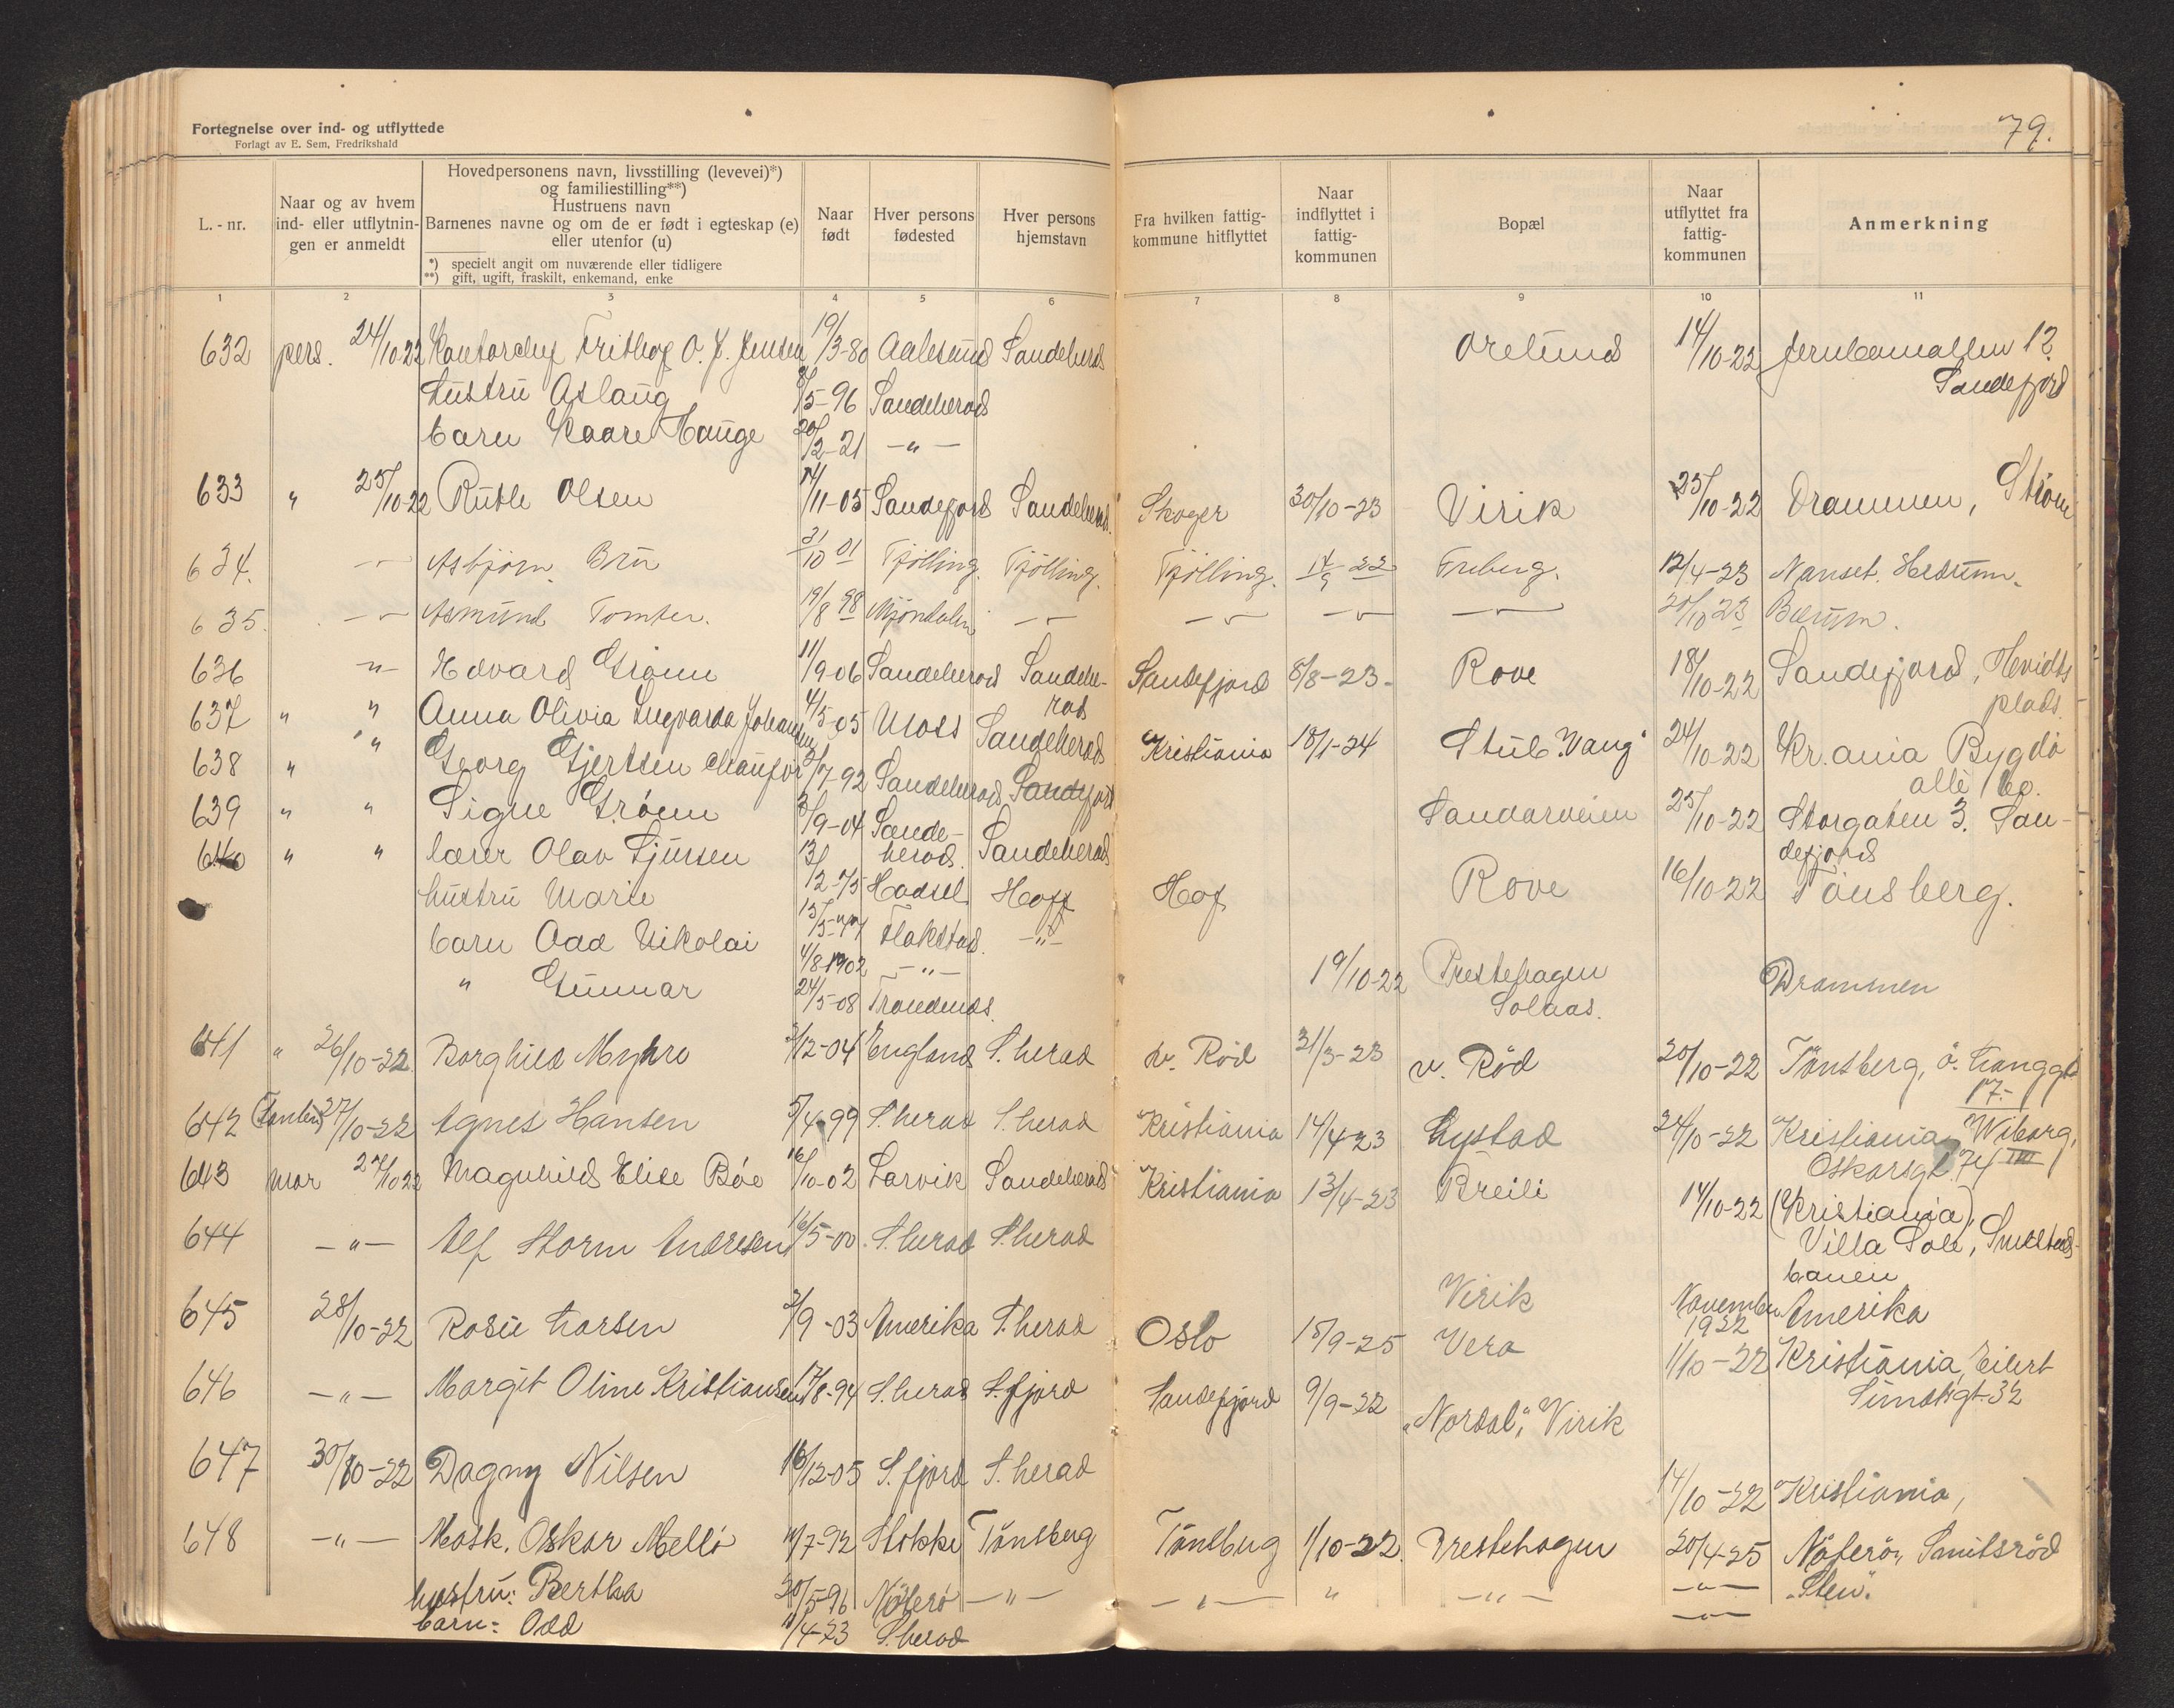 Fortegnelse over ind- og utflyttede
Forlagt av E. Sem, Fredrikshald
79.
L. - nr.
Naar og av hvem ind- eller utflytnin- gen er anmeldt
Hovedpersonens navn, livsstilling (levevei)*) og familiestilling**)
Hustruens navn
Barnenes navne og om de er født i egteskap (e) eller utenfor (u)
*) specielt angit om nuværende eller tidligere
**) gift, ugift, fraskilt, enkemand, enke
Naar født
Hver persons fødested
Hver persons hjemstavn
Fra hvilken fattig- kommune hitflyttet
Naar indflyttet i fattig- kommunen
Bopæl
Naar utflyttet fra fattig- kommunen
Anmerkning
1 2 3 4 5 6 7 8 9 10 11
632 pers. 24/10-22 Kontorchef Frithof O. J. Jensen 19/3-80 Aalesund Sandeherad Orelund 14/10-22 Jernbanealleen 12
Sandefjord
hustru Aslaug /5-96 Sandeherad
barn Kaare Hauge 20/2-21 -"-
633 " 25/10-22 Ruth Olsen 14/11-05 Sandefjord Sandeherad Skoger 30/10-23 Virik 25/10-22 Drammen, Strøm
634. Asbjørn Brun 31/10 01 Tjølling Tjølling. Tjølling. 14/9 22 Freberg. 12/4-23 Nanset. Hedrum.
635. Asmund Tomter. 19/8 98 Mjøndalen 20/10 23 Bærum.
636 -"- Edvard Grønn 11/9-06 Sandeherad Sandehe-
rad Sandefjord 8/8-23- Rove 18/10-22 Sandefjord, Hvidts
plads.
637 " " Anna Olivia Ingvarda Johansen 4/5-05 Moss Sandeherad Kristiania 18/1-24 Stub. "Vang" 24/10-22 Kr.ania Bygdø
alle 60.
638 " " Georg Gjertsen chaufør /7-92 Sandeherad Sandefjord
639 " " Signe Grønn /9-04 Sande-
herad. Sandeherad Sandarveien 25/10-22 Storgaten 3. San-
defjord
640 " " lærer Olav Sjursen 13/2-75 Hadsel Hoff Hof Rove 16/10-22 Tønsberg.
hustru Marie 13/5-77 Flakstad. -"-
barn Odd Nikolai 4/8-1902 -"- 19/10-22 Prestehagen
Solaas. Drammen
" Gunnar 24/5-08 Trondenæs.
641 " 26/10-22 Borghild Myhre 2/12-04 England S. herad v. Rød 31/3-23 v. Rød 20/10-22 Tønsberg, ö. langgt
17.-
642 27/10-22 Agnes Hansen 5/4-99 S. herad S. herad Kristiania 14/4-23 Lystad 24/10-22 Kristiania, Wiborg,
Oskarsgt. 74 III
643 mor 27/10 22 Magnhild Elise Bøe 16/10-02 Larvik Sandeherad Kristiania 13/4-23 Breili 14/10-22 (Kristiania),
Villa Sole, Smestad-
banen
644 -"- Alf Storm Andresen 16/5-00 S. herad S. herad Virik November
1922 Amerika
645 28/10-22 Rosie Larsen 2/9-03 Amerika S. herad Oslo 15/9-25 Vera 1/10-22 Kristiania, Eilert
Sundtsgt. 32
646 -"- Margit Oline Kristiansen 17/8-94 S. herad S. fjord Sandefjord 9/9-22 "Nordal", Virik
647 30/10-22 Dagny Nilsen 16/12-05 S. fjord S. herad 14/10-22 Kristiania,
648 -"- Mask. Oskar Mellø /7-92 Stokke Tönsberg Tönsberg 1/10-22. Prestehagen 20/4-25 Nøterö, Smidsrød
hustru: Bertha 30/5-96 Nøterø -"- -"- " -"- -"- "Sten".
barn: Odd 11/4-23 S. herad -"-